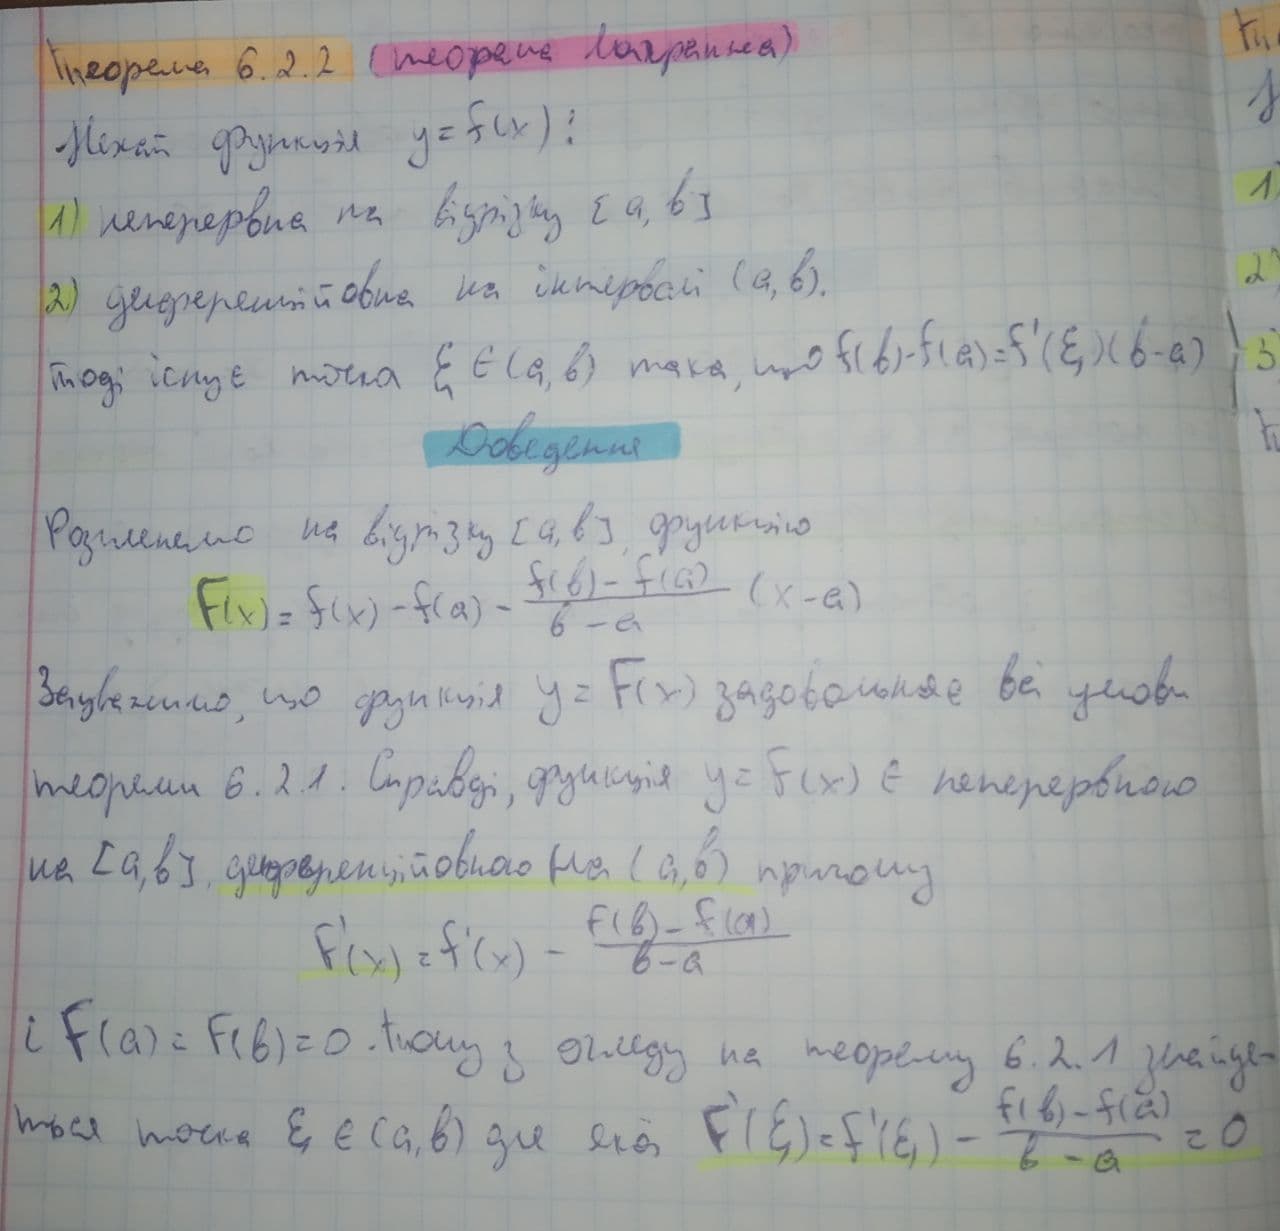 Теорема 6.2.2 (теорема Лагранжа)
Нехай функція y = f(x):
1) неперервна на відрізку [a, b]
2) диференційовна на інтервалі (a, b).
тоді існує точка ξ ∈ (a, b) така, що f(b) - f(a) = f'(ξ)(b-a)
Доведення
Розглянемо на відрізку [a, b] функцію
F(x) = f(x) - f(a) - \frac{f(b) - f(a)}{b - a} (x - a)
Зауважимо, що функція y = F(x) задовольняє всі умови
теореми 6.2.1. Справді, функція y = F(x) є неперервною
на [a, b], диференційовною на (a, b) причому
F'(x) = f'(x) - \frac{f(b) - f(a)}{b - a}
і F(a) = F(b) = 0. Тому з огляду на теорему 6.2.1 знайде-
ться точка ξ ∈ (a, b) для якої F'(ξ) = f'(ξ) - \frac{f(b) - f(a)}{b - a} = 0
1)
2)
3